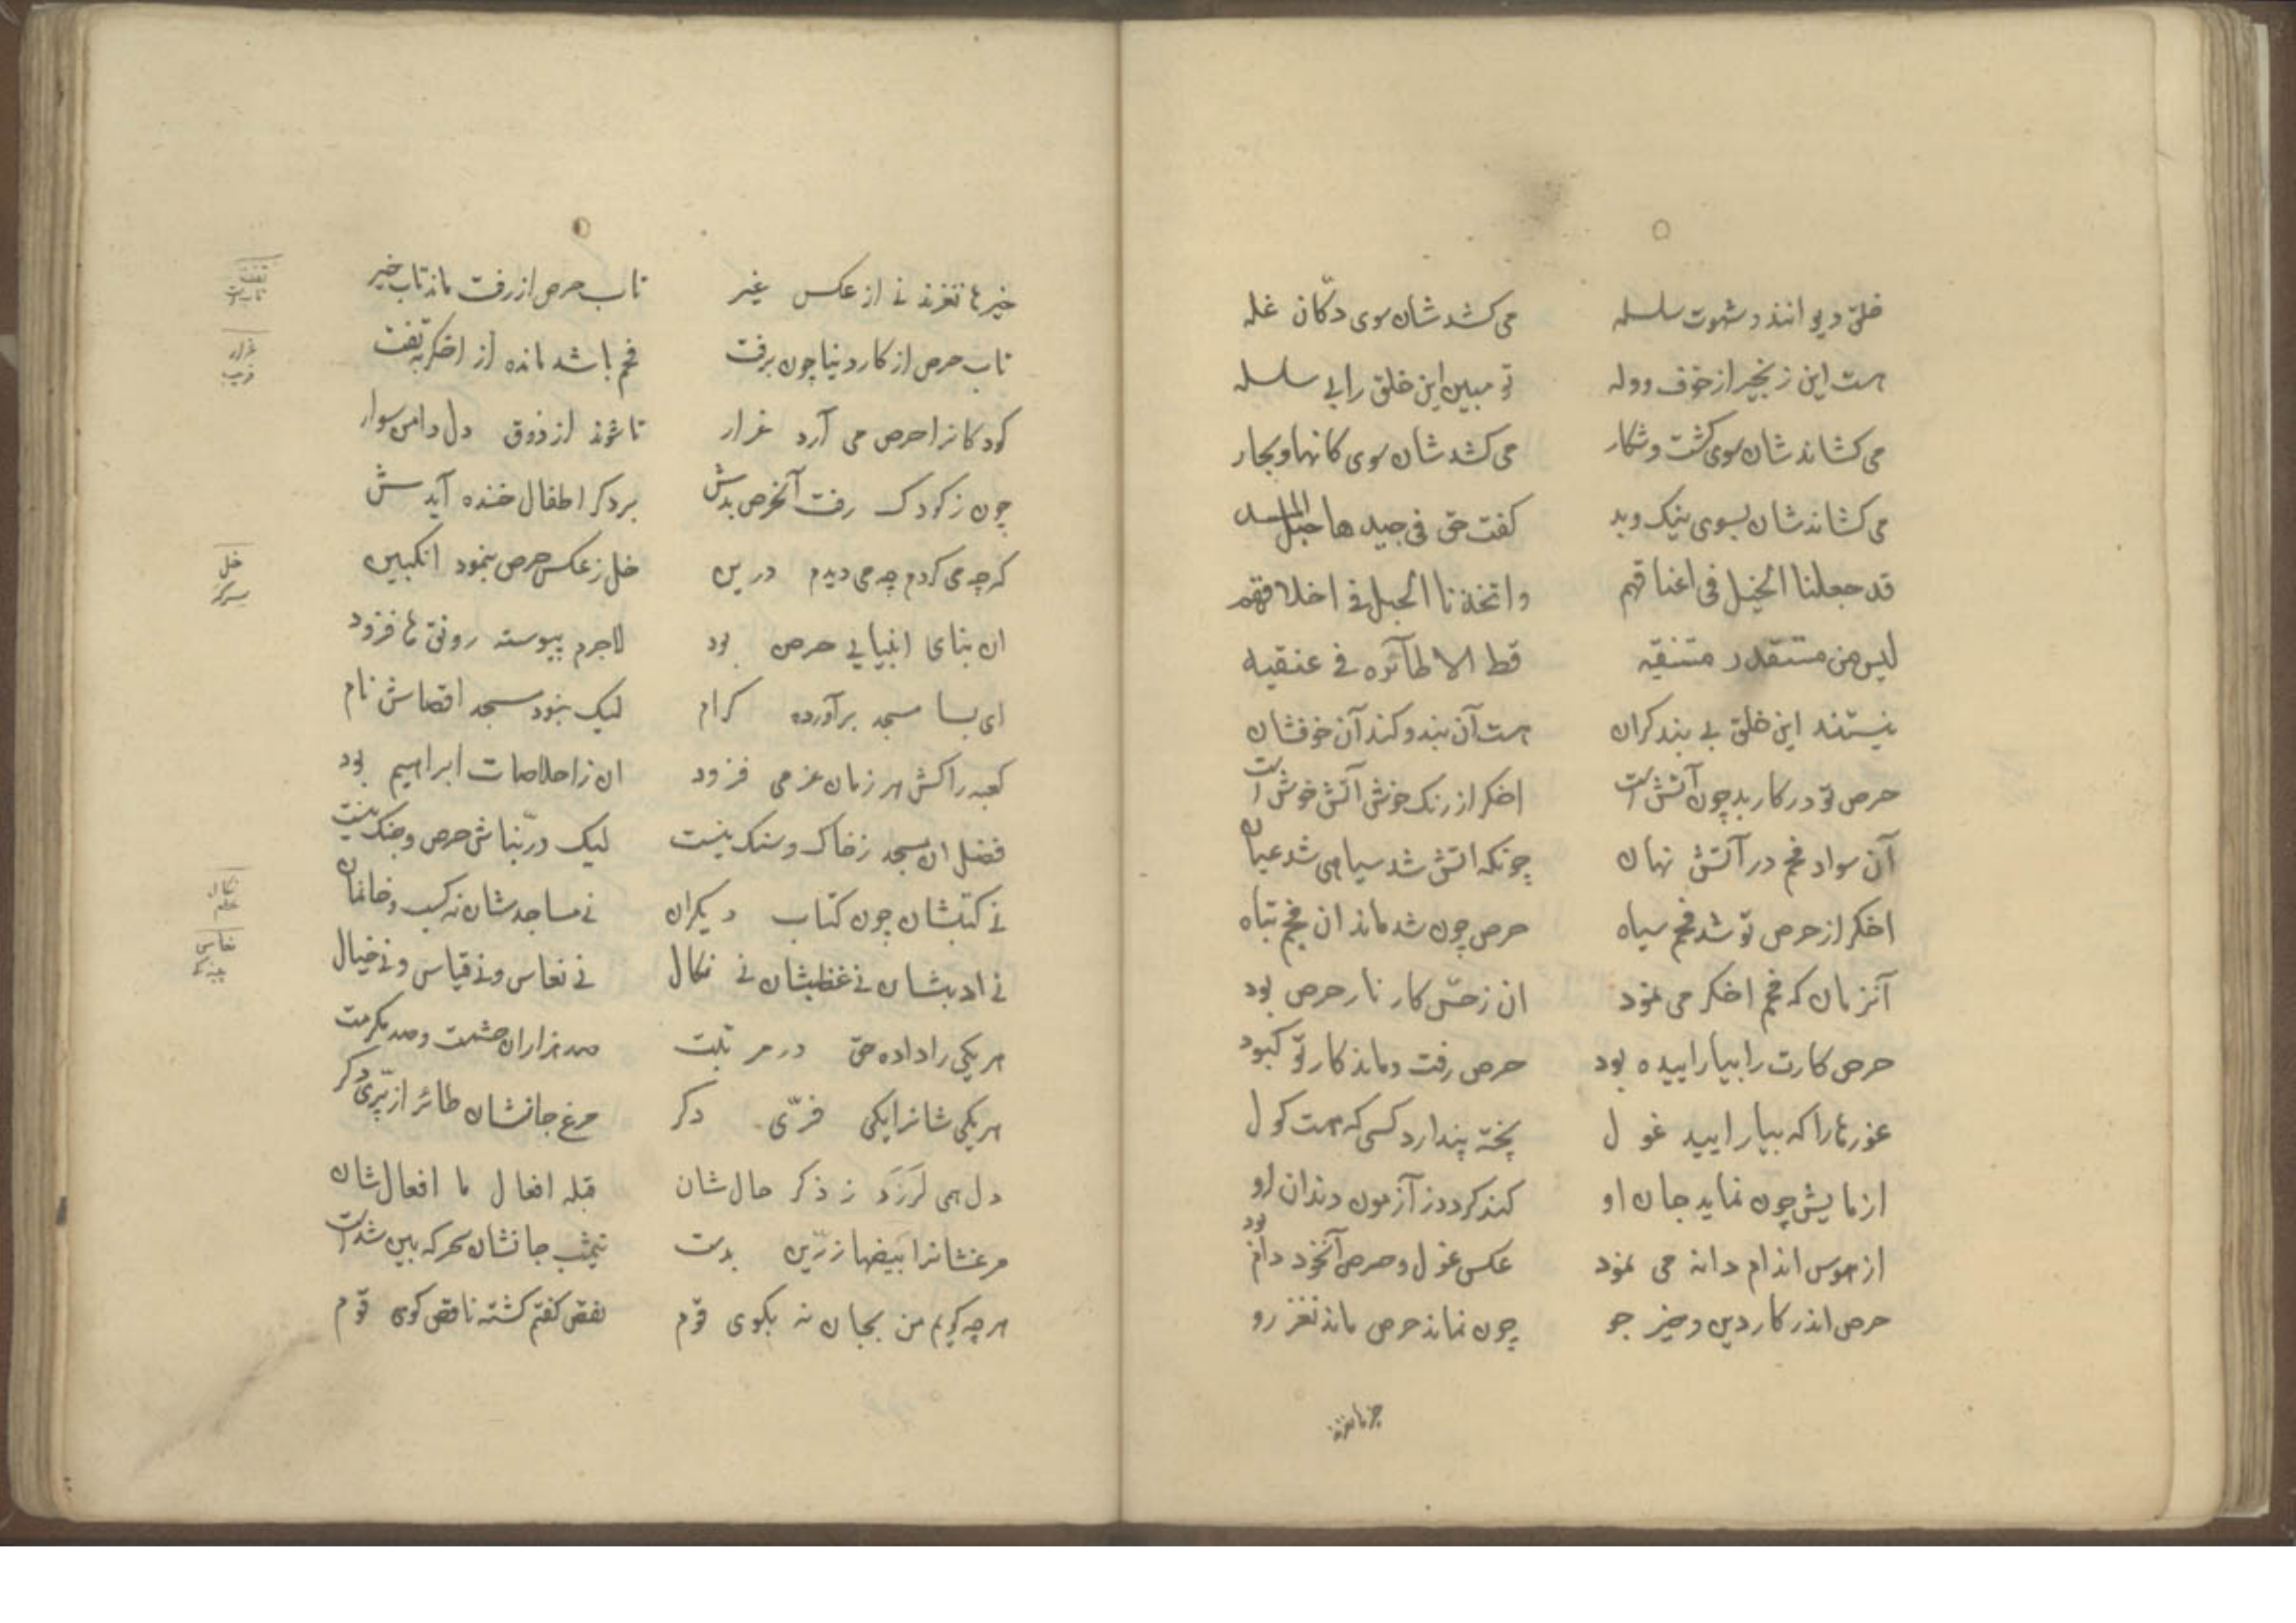 خلق دیوانند و شهوت سلسله می‌کشدشان سوی دکّان غله
هست این زنجیر از خوف و وله تو مبین این خلق را بی سلسله
می‌کشاندشان سوی کشت و شکار می‌کشدشان سوی کانها و بحار
می‌کشاندشان بسوی نیک و بد کفت حق فی جیدها حبل المسد
قد جعلنا الحبل فی اعناقهم واتخذنا الحبل فی اخلاقهم
لیس من مستقذر مستنقیه قط الا طآئره فی عنقیه
نیستند این خلق بی بند کران هست آن بند و کند آن خوفشان
حرص تو در کار بد چون آتش است اخکر از رنک خوش آتش خوش است
آن سواد فحم در آتش نهان چونکه اتش شد سیاهی شد عیان
اخکر از حرص تو شد فحم سیاه حرص چون شد ماند ان فحم تباه
آنزمان که فحم اخکر می نمود ان ز حسّ کار نار حرص بود
حرص کارت را بیاراییده بود حرص رفت و ماند کار تو کبود
غورها را که بیارایید غول پخته پندارد کسی که هست کول
ازمایش چون نماید جان او کند کردد ز آزمون دندان او
از هوس اندام دانه می نمود عکس غول و حرص آنخود دام بود
حرص اندر کار دین و خیر جو چون نماند حرص ماند نغز رو
خیرها نغزند
خیرها نغزند نی از عکس غیر تاب حرص ار رفت ماند تاب خیر
تاب حرص از کار دنیا چون برفت فحم باشد مانده از اخکر بتفت
کودکانرا حرص می آرد غرار تا شوند از ذوق دل دامن سوار
چون ز کودک رفت آنحرص بدش بر دکر اطفال خنده آیدش
کرچه می کردم چه می دیدم درین خل ز عکس حرص بنمود انکبین
ان بنای انبیا بی حرص بود لاجرم پیوسته رونق ها فزود
ای بسا مسجد برآورده کرام لیک نبود مسجد اقصاش نام
کعبه را کش هر زمان عزمی فزود ان ز اخلاصات ابراهیم بود
فضل ان مسجد ز خاک و سنک نیست لیک در بنّاش حرص و جنک نیست
نی کتبشان چون کتاب دیکران نی مساجدشان نه کسب و خانمان
نی ادبشان نی غضبشان نی نکال نی نعاس و نی قیاس و نی خیال
هر یکی را داده حق در مرتبت صد هزاران حشمت و صد مکرمت
هر یکی شانرا یکی فرّی دکر مرغ جانشان طائر از پرّی دکر
دل همی لرزد ز ذکر حال شان قبله افعال ما افعال شان
مرغشانرا بیضها زرّین بدست نیمشب جانشان سحرکه بین شدست
هر چه کویم من بجان نه بکوی قوم نقص کفتم کشته ناقص کوی قوم
تفت
غرار
فریب
خل
سرکه
نکال
نعاس